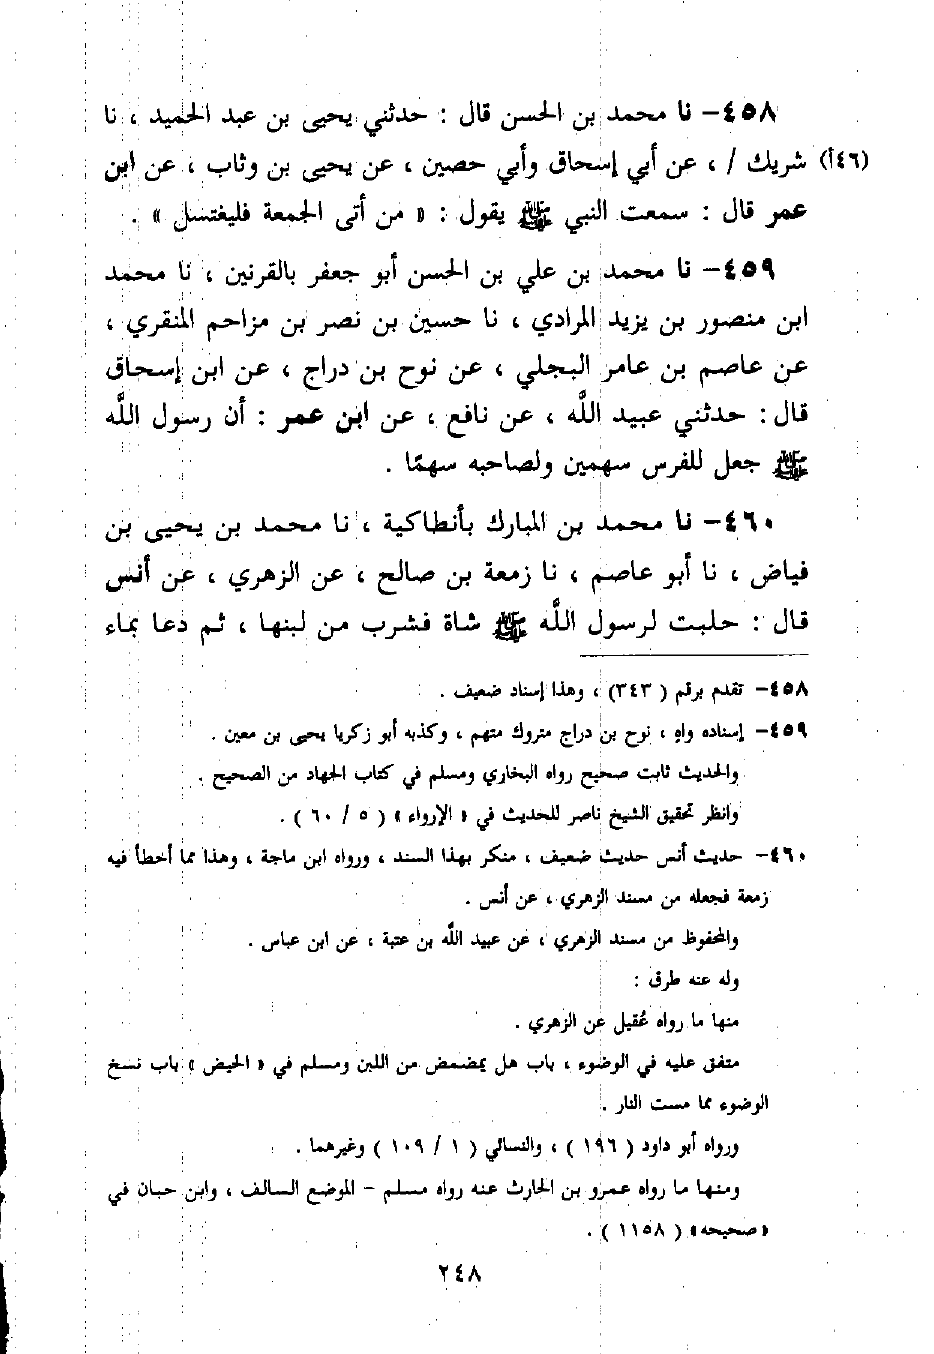 ٤٥٨- نا محمد بن الحسن قال : حدثني يحيى بن عبد الحميد ، نا
(٤٦أ) شريك / ، عن أبي إسحاق وأبي حصين ، عن يحيى بن وثاب ، عن ابن
عمر قال : سمعت النبي ﷺ يقول : « من أتى الجمعة فليغتسل » .
٤٥٩- نا محمد بن علي بن الحسن أبو جعفر بالقرنين ، نا محمد
ابن منصور بن يزيد المرادي ، نا حسين بن نصر بن مزاحم المنقري ،
عن عاصم بن عامر البجلي ، عن نوح بن دراج ، عن ابن إسحاق
قال : حدثني عبيد اللَّه ، عن نافع ، عن ابن عمر : أن رسول اللَّه
ﷺ جعل للفرس سهمين ولصاحبه سهمًا .
٤٦٠- نا محمد بن المبارك بأنطاكية ، نا محمد بن يحيى بن
فياض ، نا أبو عاصم ، نا زمعة بن صالح ، عن الزهري ، عن أنس
قال : حلبت لرسول اللَّه ﷺ شاة فشرب من لبنها ، ثم دعا بماء
٤٥٨- تقدم برقم ( ٣٤٣) ، وهذا إسناد ضعيف .
٤٥٩- إسناده واهٍ ، نوح بن دراج متروك متهم ، وكذبه أبو زكريا يحيى بن معين .
والحديث ثابت صحيح رواه البخاري ومسلم في كتاب الجهاد من الصحيح .
وانظر تحقيق الشيخ ناصر للحديث في « الإرواء » ( ٥ / ٦٠ ) .
٤٦٠- حديث أنس حديث ضعيف ، منكر بهذا السند ، ورواه ابن ماجة ، وهذا مما أخطأ فيه
زمعة فجعله من مسند الزهري ، عن أنس .
والمحفوظ من مسند الزهري ، عن عبيد اللَّه بن عتبة ، عن ابن عباس .
وله عنه طرق :
منها ما رواه عُقيل عن الزهري .
متفق عليه في الوضوء ، باب هل يمضمض من اللبن ومسلم في « الحيض » باب نسخ
الوضوء مما مست النار .
ورواه أبو داود ( ١٩٦ ) ، والنسائي ( ١ / ١٠٩ ) وغيرهما .
ومنها ما رواه عمرو بن الحارث عنه رواه مسلم - الموضع السالف ، وابن حبان في
«صحيحه» ( ١١٥٨ ) .
٢٤٨